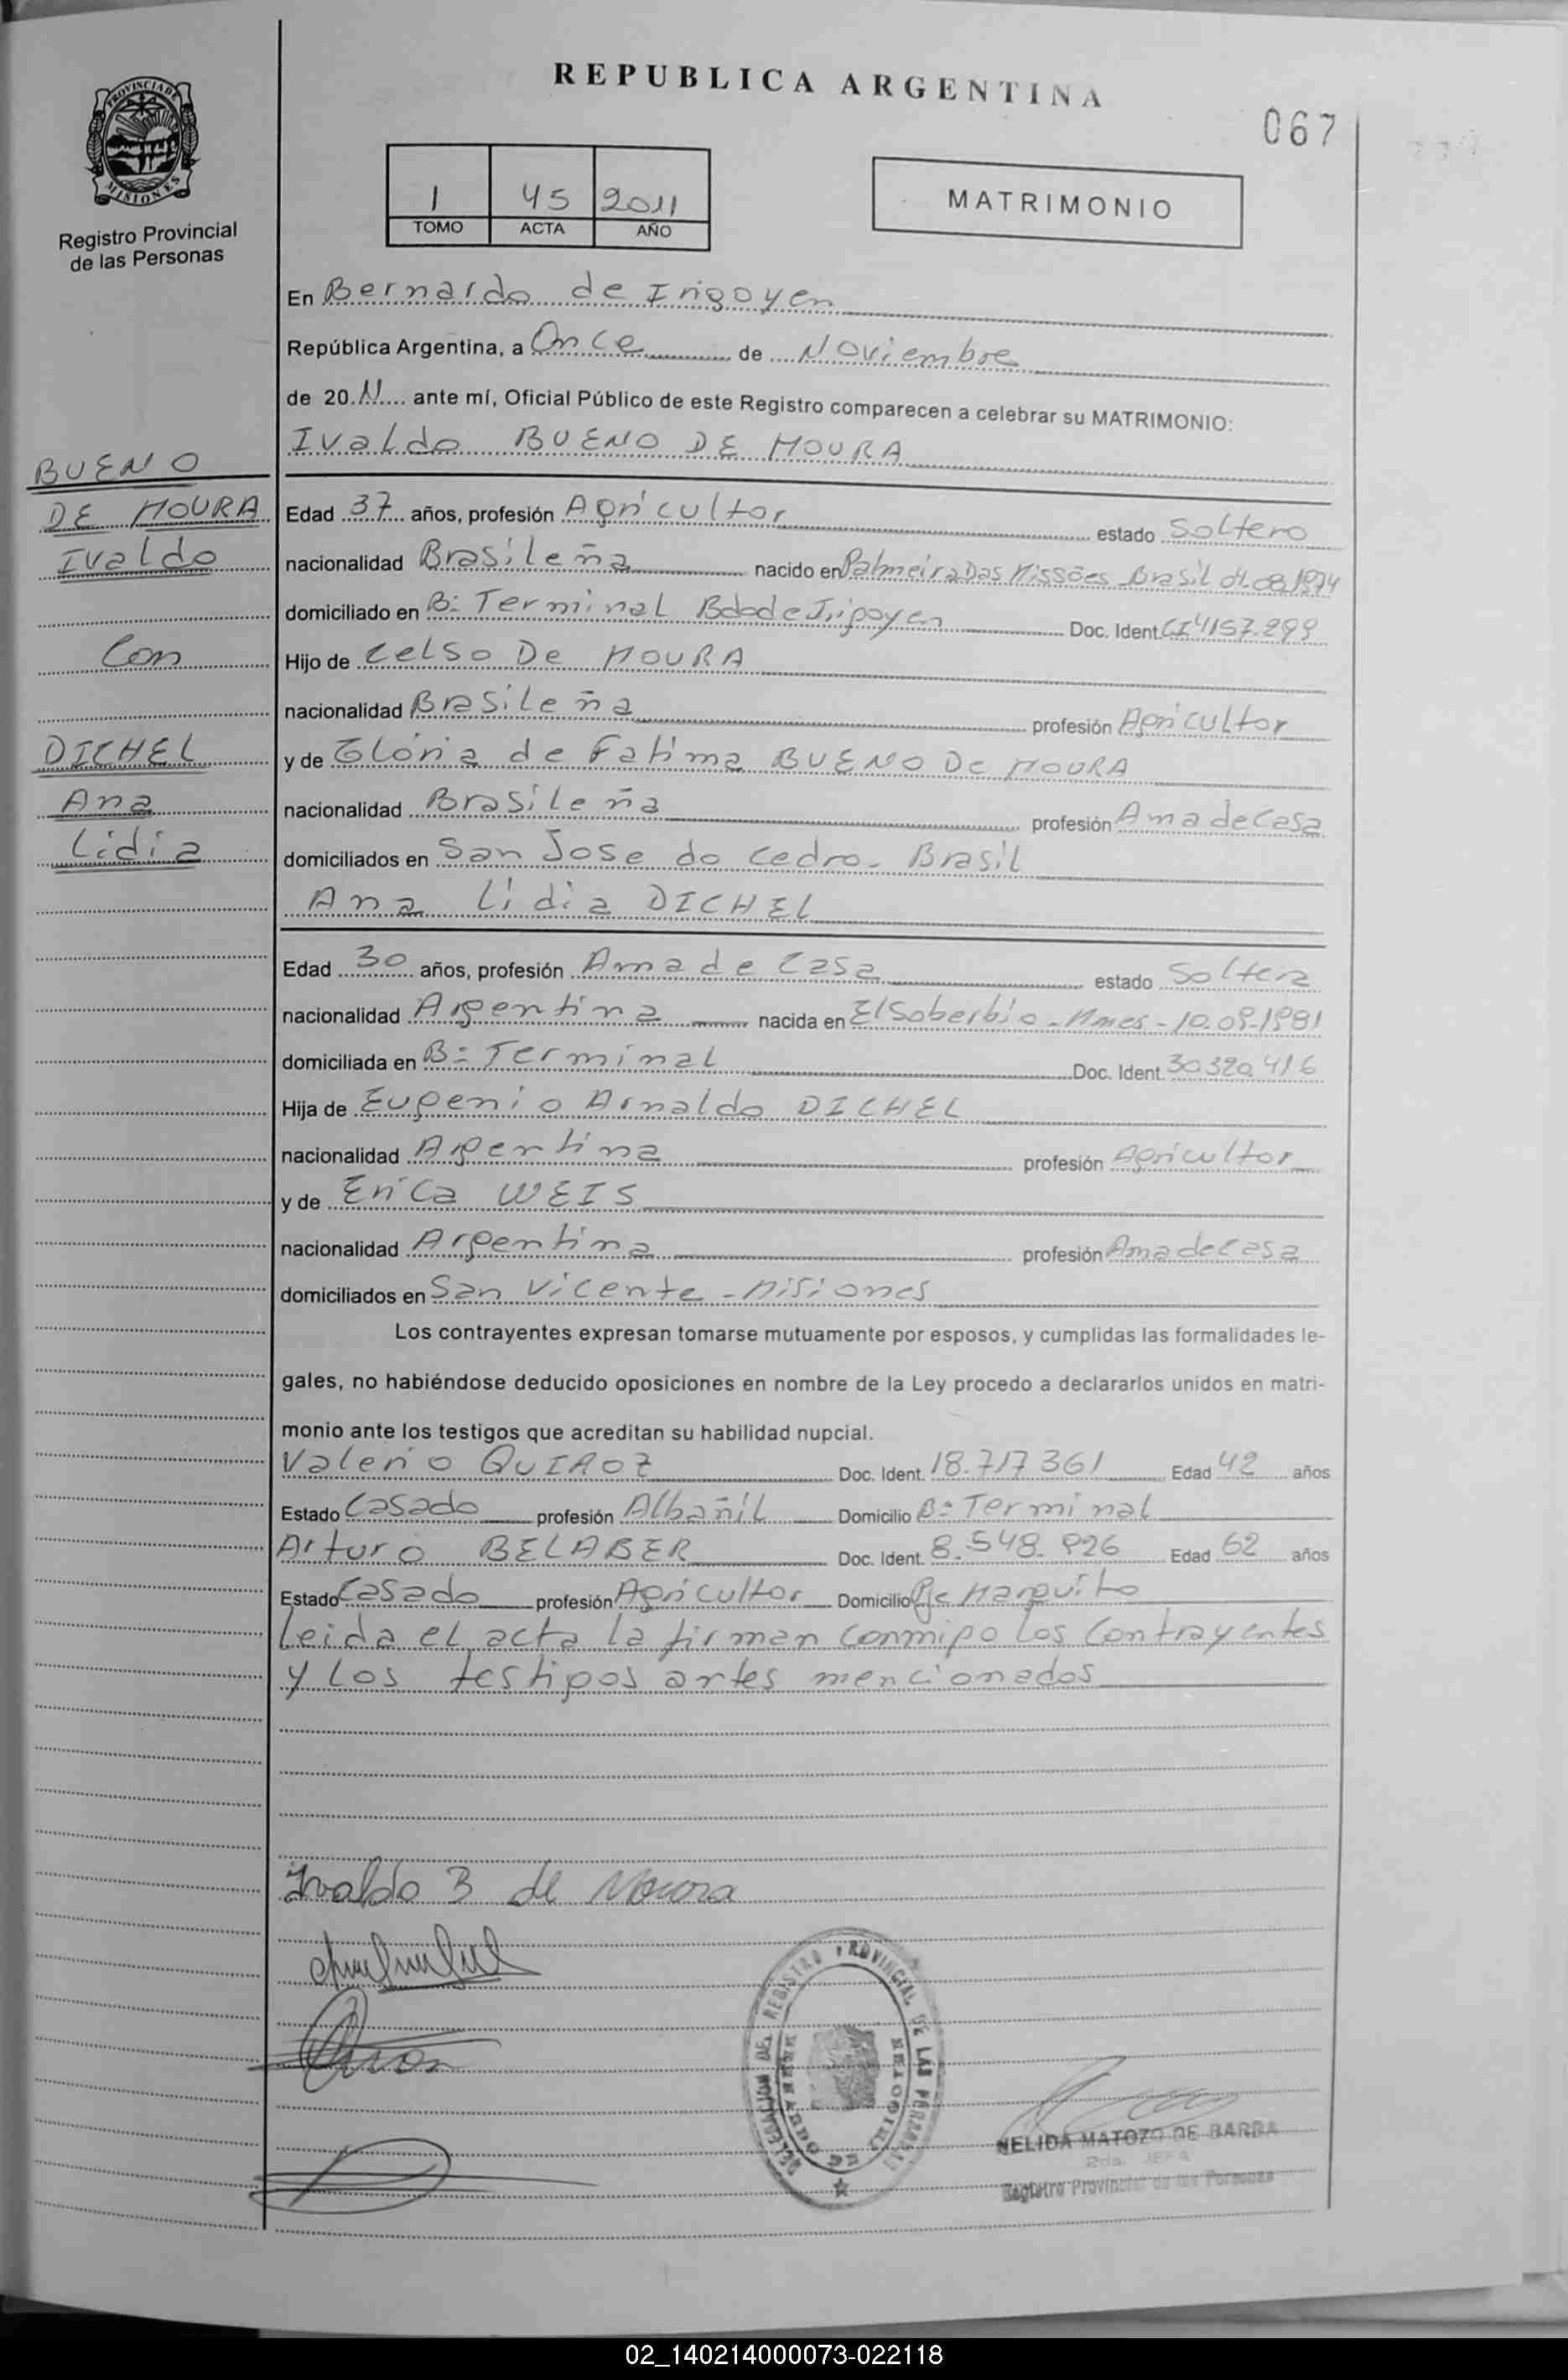 REPUBLICA ARGENTINA
067
PROVINCIA DE
MISIONES
Registro Provincial
de las Personas
1 45 2011
TOMO ACTA AÑO
MATRIMONIO
En Bernardo de Irigoyen
República Argentina, a Once de Noviembre
de 20 11 ante mí, Oficial Público de este Registro comparecen a celebrar su MATRIMONIO:
Ivaldo BUENO DE MOURA
BUENO
DE MOURA
Ivaldo
Con
DICHEL
Ana
Lidia
Edad 37 años, profesión Agricultor estado Soltero
nacionalidad Brasileña nacido en Palmeira Das Missões Brasil 01.08.1974
domiciliado en Bº Terminal Bdo de Irigoyen Doc. Ident. CI 4157.299
Hijo de Celso De MOURA
nacionalidad Brasileña profesión Agricultor
y de Gloria de Fatima BUENO De MOURA
nacionalidad Brasileña profesión Ama de Casa
domiciliados en San Jose do Cedro - Brasil
Ana Lidia DICHEL
Edad 30 años, profesión Ama de Casa estado Soltera
nacionalidad Argentina nacida en El Soberbio - Mnes - 10.09.1981
domiciliada en Bº Terminal Doc. Ident. 30320416
Hija de Eugenio Arnaldo DICHEL
nacionalidad Argentina profesión Agricultor
y de Erica WEIS
nacionalidad Argentina profesión Ama de Casa
domiciliados en San Vicente - Misiones
Los contrayentes expresan tomarse mutuamente por esposos, y cumplidas las formalidades le-
gales, no habiéndose deducido oposiciones en nombre de la Ley procedo a declararlos unidos en matri-
monio ante los testigos que acreditan su habilidad nupcial.
Valerio QUIROZ Doc. Ident. 18.717361 Edad 42 años
Estado Casado profesión Albañil Domicilio Bº Terminal
Arturo BELABER Doc. Ident. 8.548.926 Edad 62 años
Estado Casado profesión Agricultor Domicilio Pje Marquito
Leida el acta la firman conmigo los Contrayentes
y los testigos antes mencionados
Ivaldo B de Moura
DELEGACION DE REGISTRO PROVINCIAL DE LAS PERSONAS
BERNARDO DE IRIGOYEN
NELIDA MATOZO DE BARBA
2da. JEFA
Registro Provincial de las Personas
02_140214000073-022118